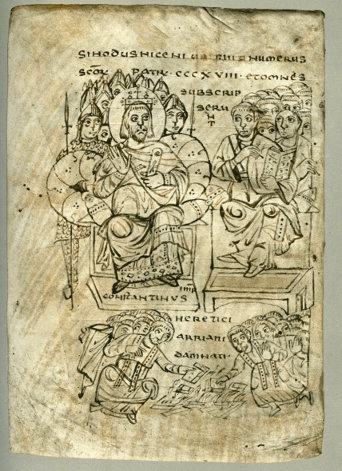 SINODUS NICENI UBI NUMERUS
SCŌR PATR̄ CCCXVIII ET OMNES
SUBSCRIP
SERU
NT
IMP
CONSTANTINUS
HERETICI
ARRIANI
DAMNATI